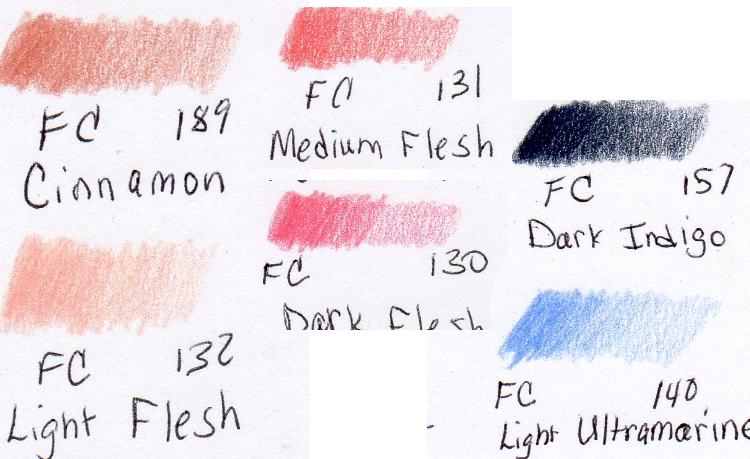 FC 189
Cinnamon
FC 131
Medium Flesh
FC 157
Dark Indigo
FC 132
Light Flesh
FC 130
Dark Flesh
FC 140
Light Ultramarine